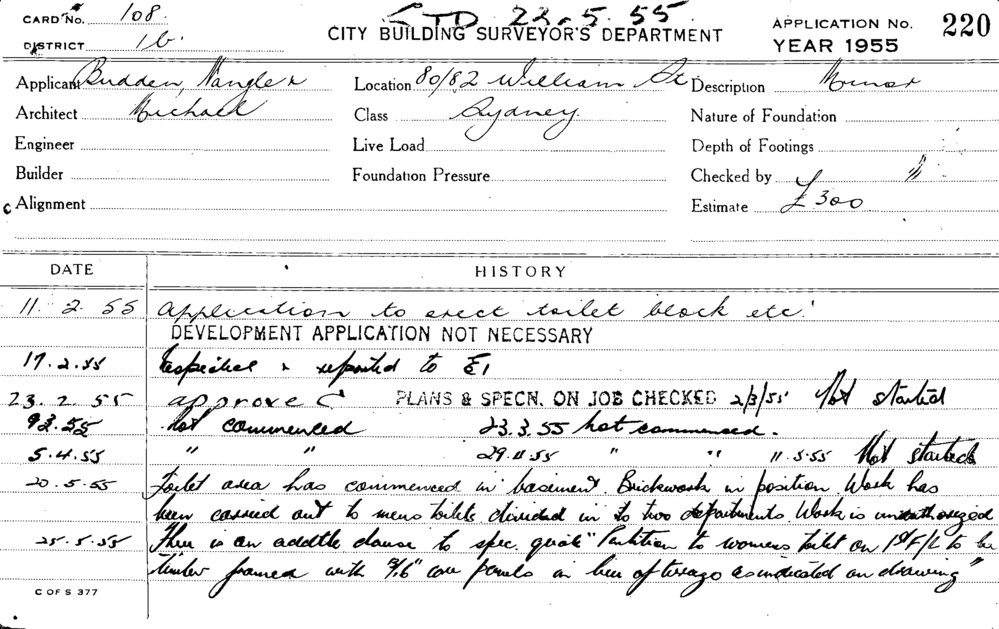 STD 23.5.55
CARD No. 108.
DISTRICT 1b.
CITY BUILDING SURVEYOR'S DEPARTMENT
APPLICATION No. 220
YEAR 1955
Applicant Budden, Nangle &
Location 80/82 William St
Description Minor
Architect Michael
Class Sydney
Nature of Foundation
Engineer
Live Load
Depth of Footings
Builder
Foundation Pressure
Checked by
Alignment
Estimate £300
DATE HISTORY
11. 2. 55 Application to erect toilet block etc.
DEVELOPMENT APPLICATION NOT NECESSARY
17.2.55 & reported to
23.2.55 approved PLANS & SPECN. ON JOB CHECKED 2/3/55 Not started
9.3.55 Not commenced 23.3.55 not commenced.
5.4.55 " " " " 11.5.55 Not started
20.5.55 Toilet area has commenced in basement. Brickwork in position Work has
been carried out to mens toilets divided in to two departments. Work is unauthorized
25.5.55 There is an clause to spec. quote "Partition to womens toilet on 1st F/L to be
timber framed with panels in lieu of as indicated on drawing"
C OF S 377